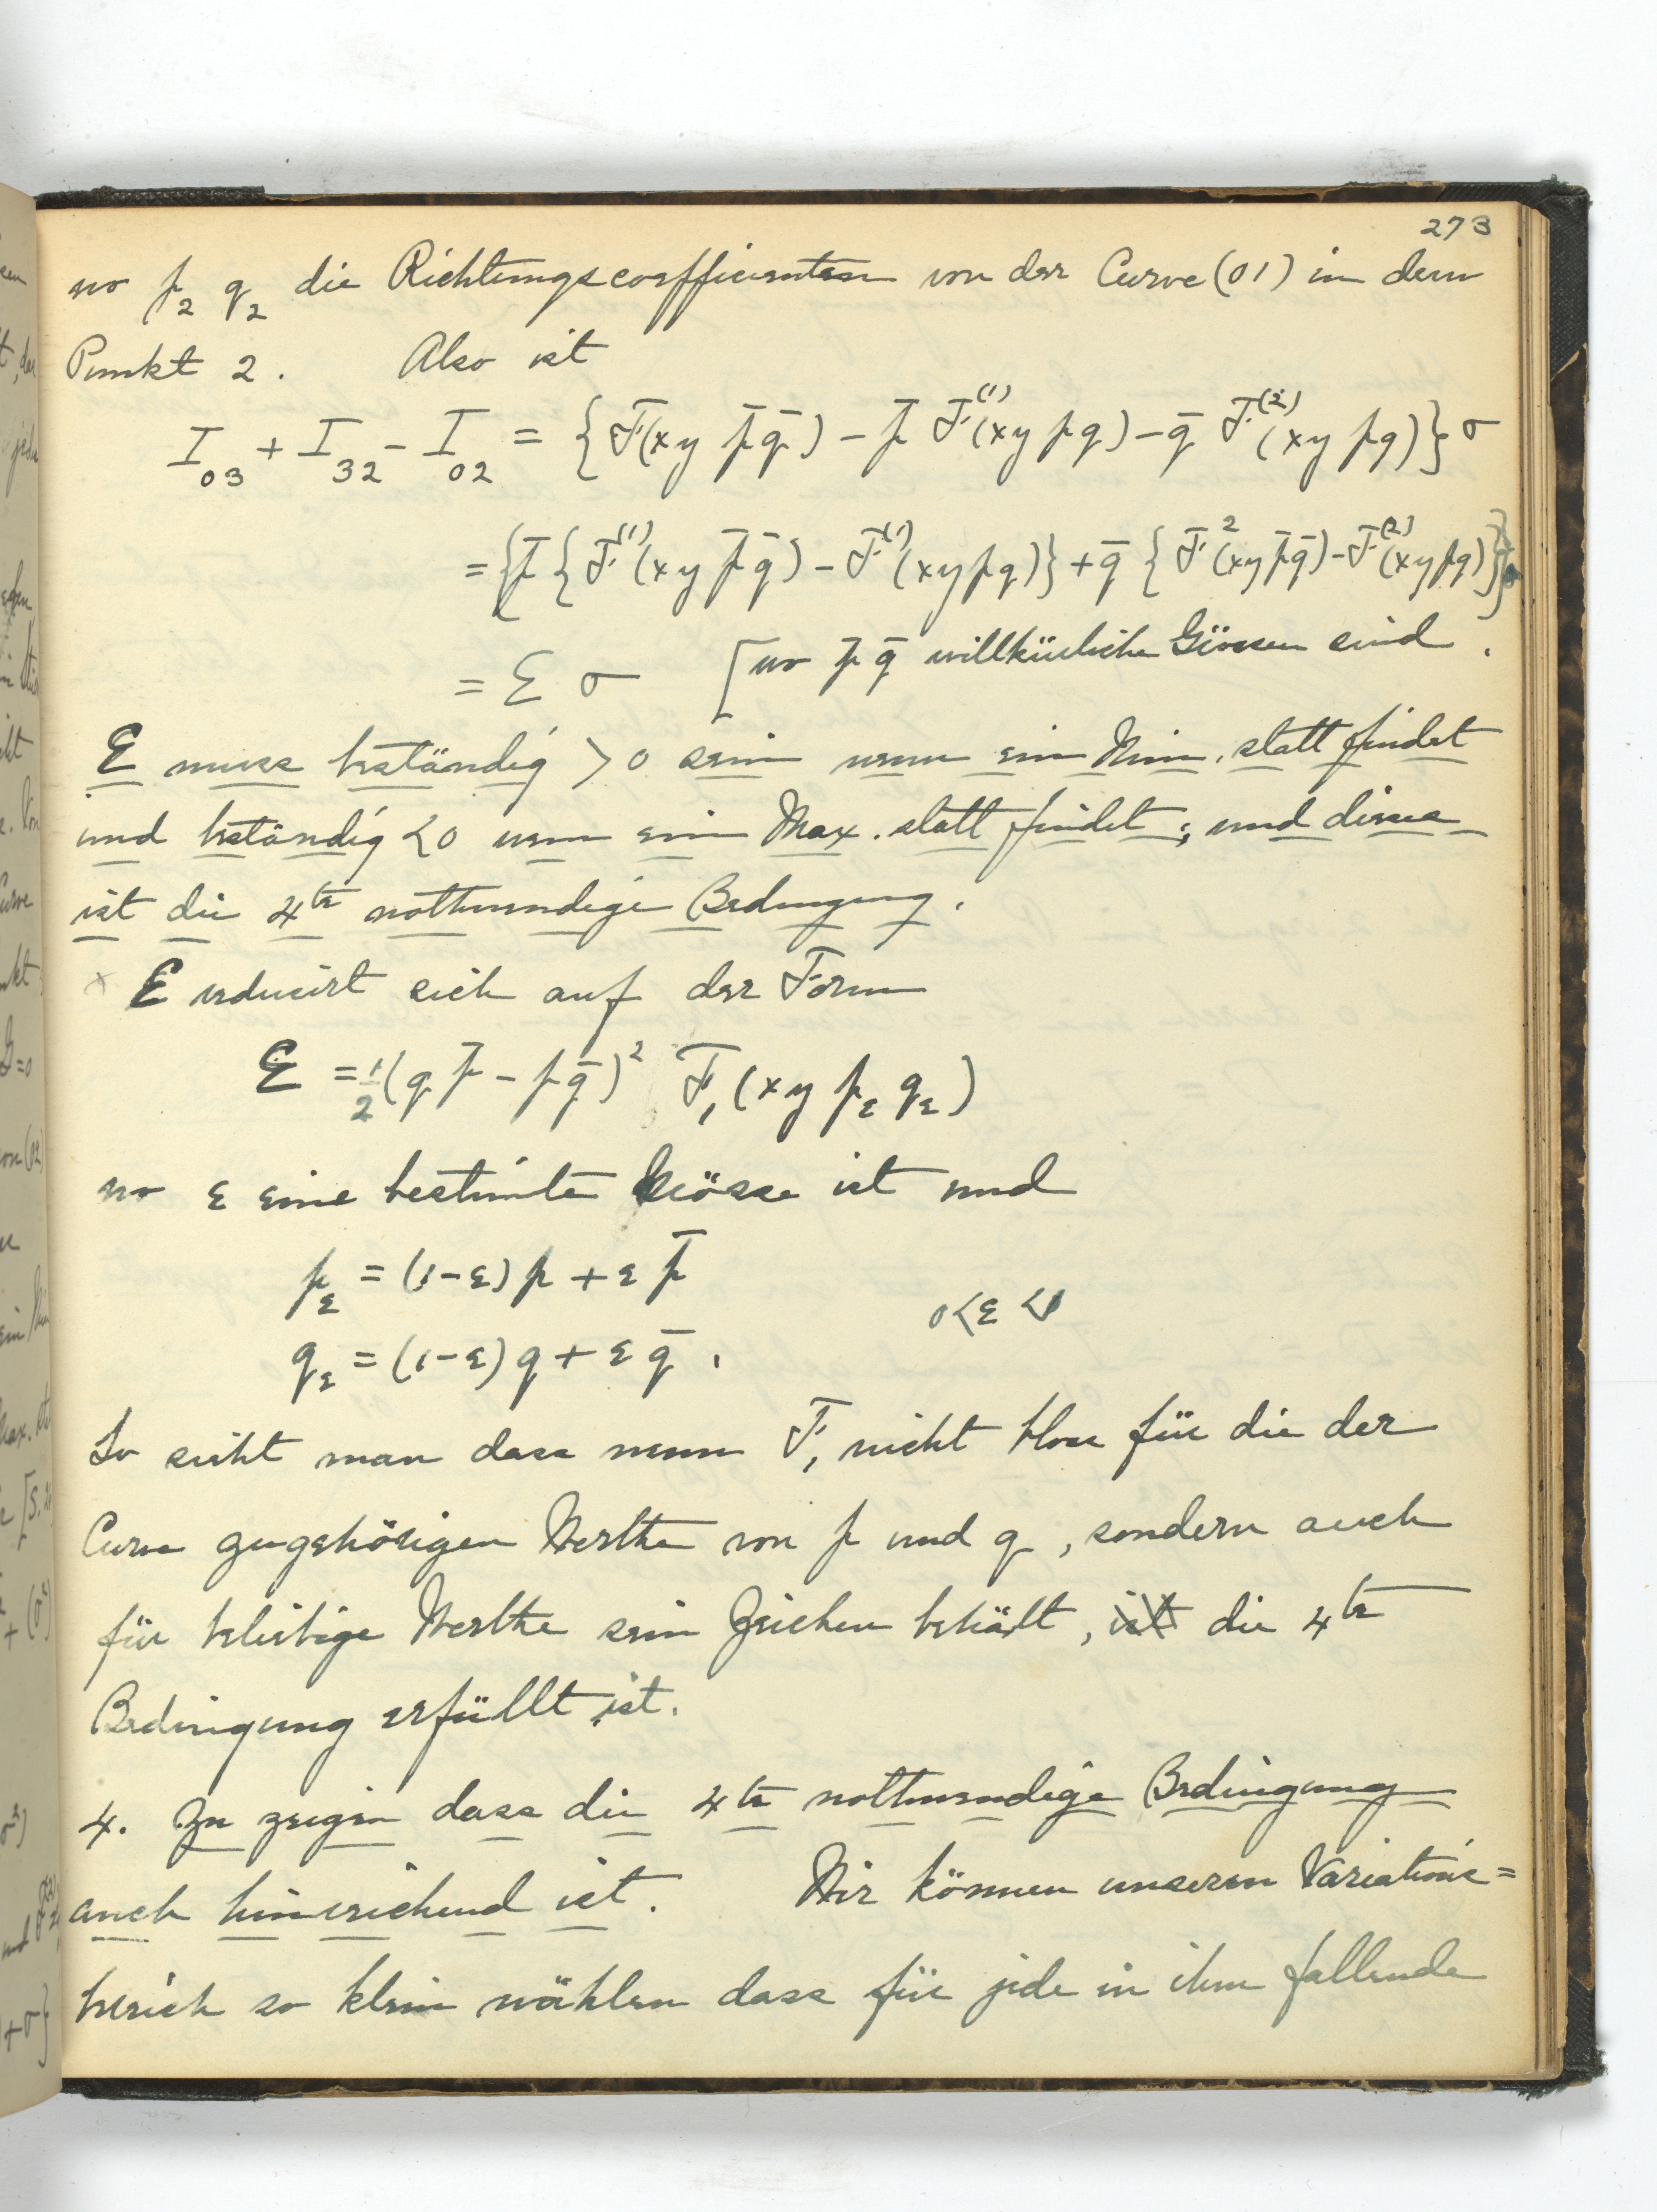 273
wo p₂ q₂ die Richtungscoefficienten von der Curve (01) in dem
Punkt 2. Also ist
I₀₃ + I₃₂ - I₀₂ = {F(xy p̄ q̄) - p̄ F⁽¹⁾(xy pq) - q̄ F⁽²⁾(xy pq)} σ
= {p̄ {F⁽¹⁾(xy p̄ q̄) - F⁽¹⁾(xy pq)} + q̄ {F²(xy p̄ q̄) - F⁽²⁾(xy pq)}}
= Ɛ σ [wo p̄ q̄ willkürliche Grössen sind.
Ɛ muss beständig > 0 sein wenn ein Min. statt findet
und beständig < 0 wenn ein Max. statt findet; und dieses
ist die 4te nothwendige Bedingung.
x Ɛ reducirt sich auf der Form
Ɛ = 1/2 (q p̄ - p q̄)² F₁(xy p_ε q_ε)
wo ε eine bestimte Grösse ist und
p_ε = (1-ε) p + ε p̄
0<ε<1
q_ε = (1-ε) q + ε q̄.
So sieht man dass wenn F₁ nicht bloss für die der
Curve zugehörigen Werthe von p und q, sondern auch
für beliebige Werthe sein Zeichen behält, ist die 4te
Bedingung erfüllt ist.
4. Zu zeigen dass die 4te nothwendige Bedingung
auch hinreichend ist. Wir können unseren Variations=
bereich so klein wählen dass für jede in ihm fallende